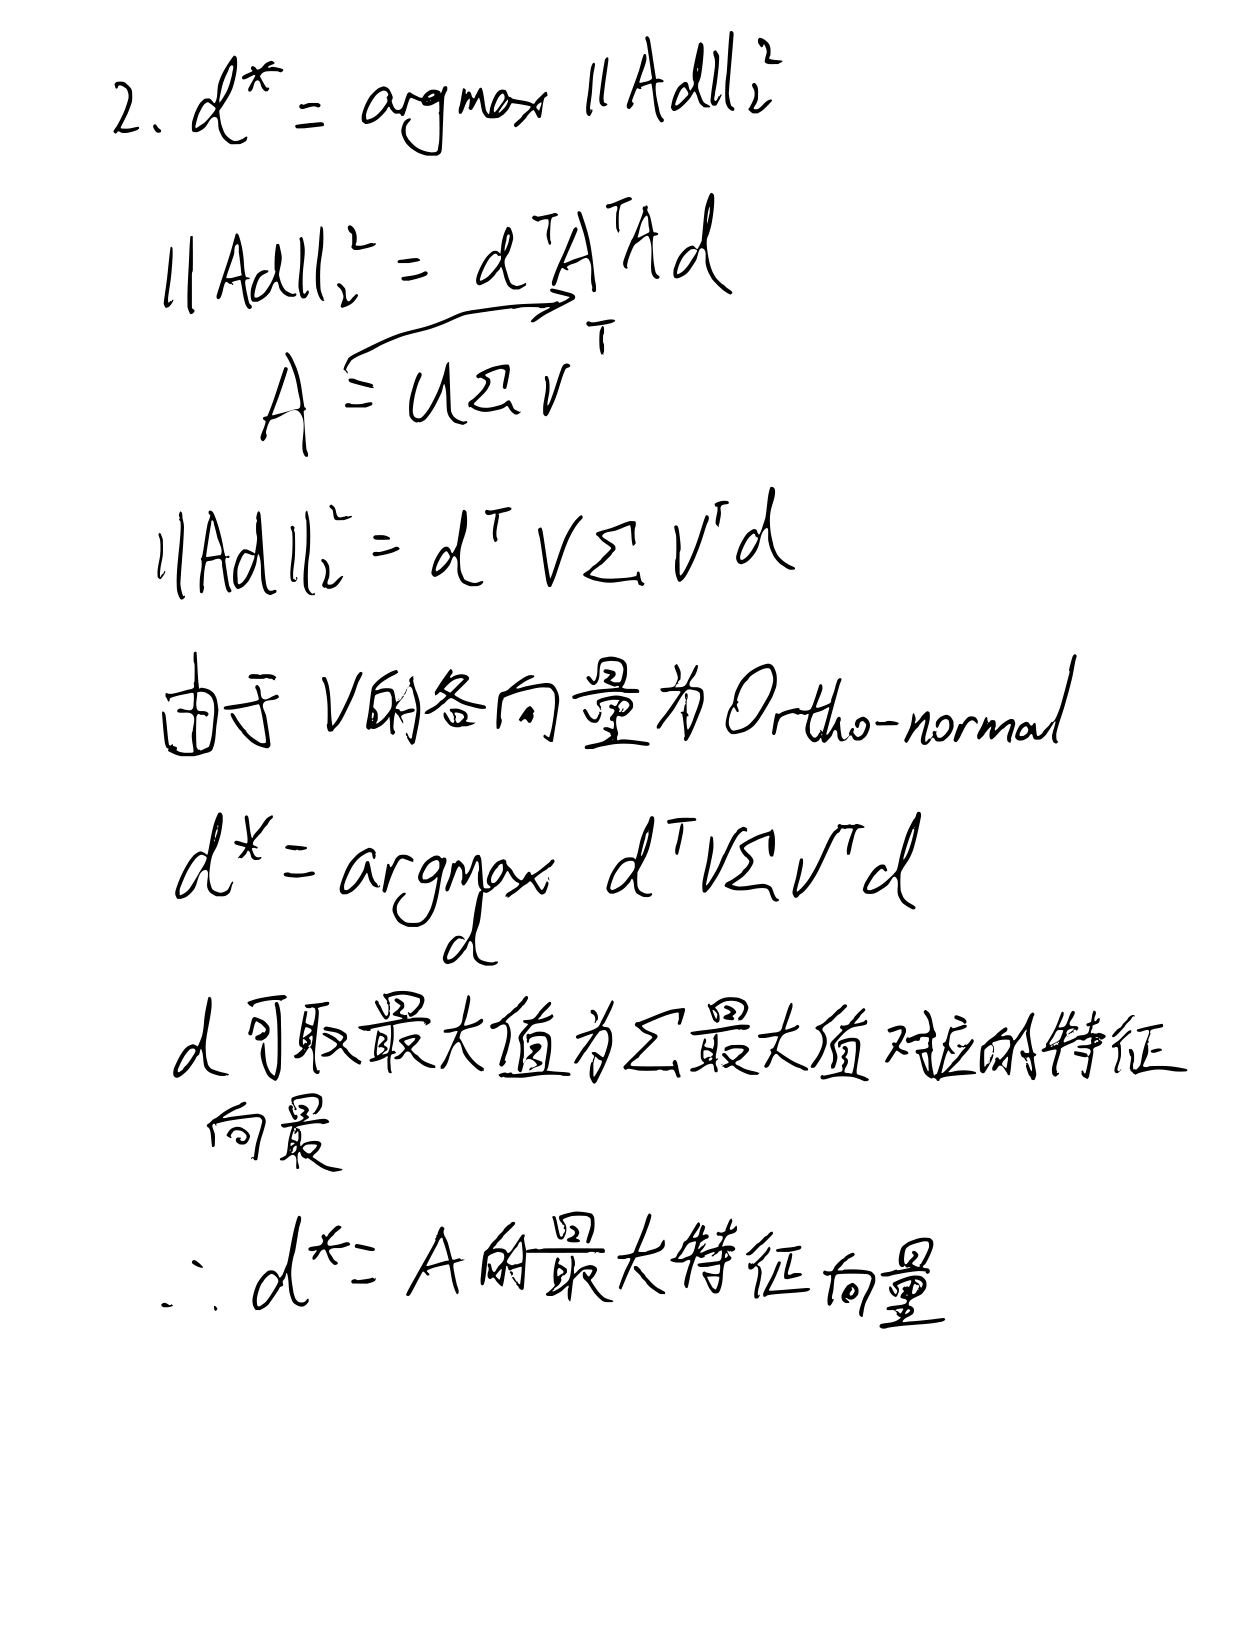 2. d* = argmax ||Ad||₂²
||Ad||₂² = dᵀAᵀAd
A = UΣVᵀ
||Ad||₂² = dᵀVΣVᵀd
由于V的各向量为Ortho-normal
d* = argmax dᵀVΣVᵀd
d
d可取最大值为Σ最大值对应的特征
向最
∴ d* = A的最大特征向量